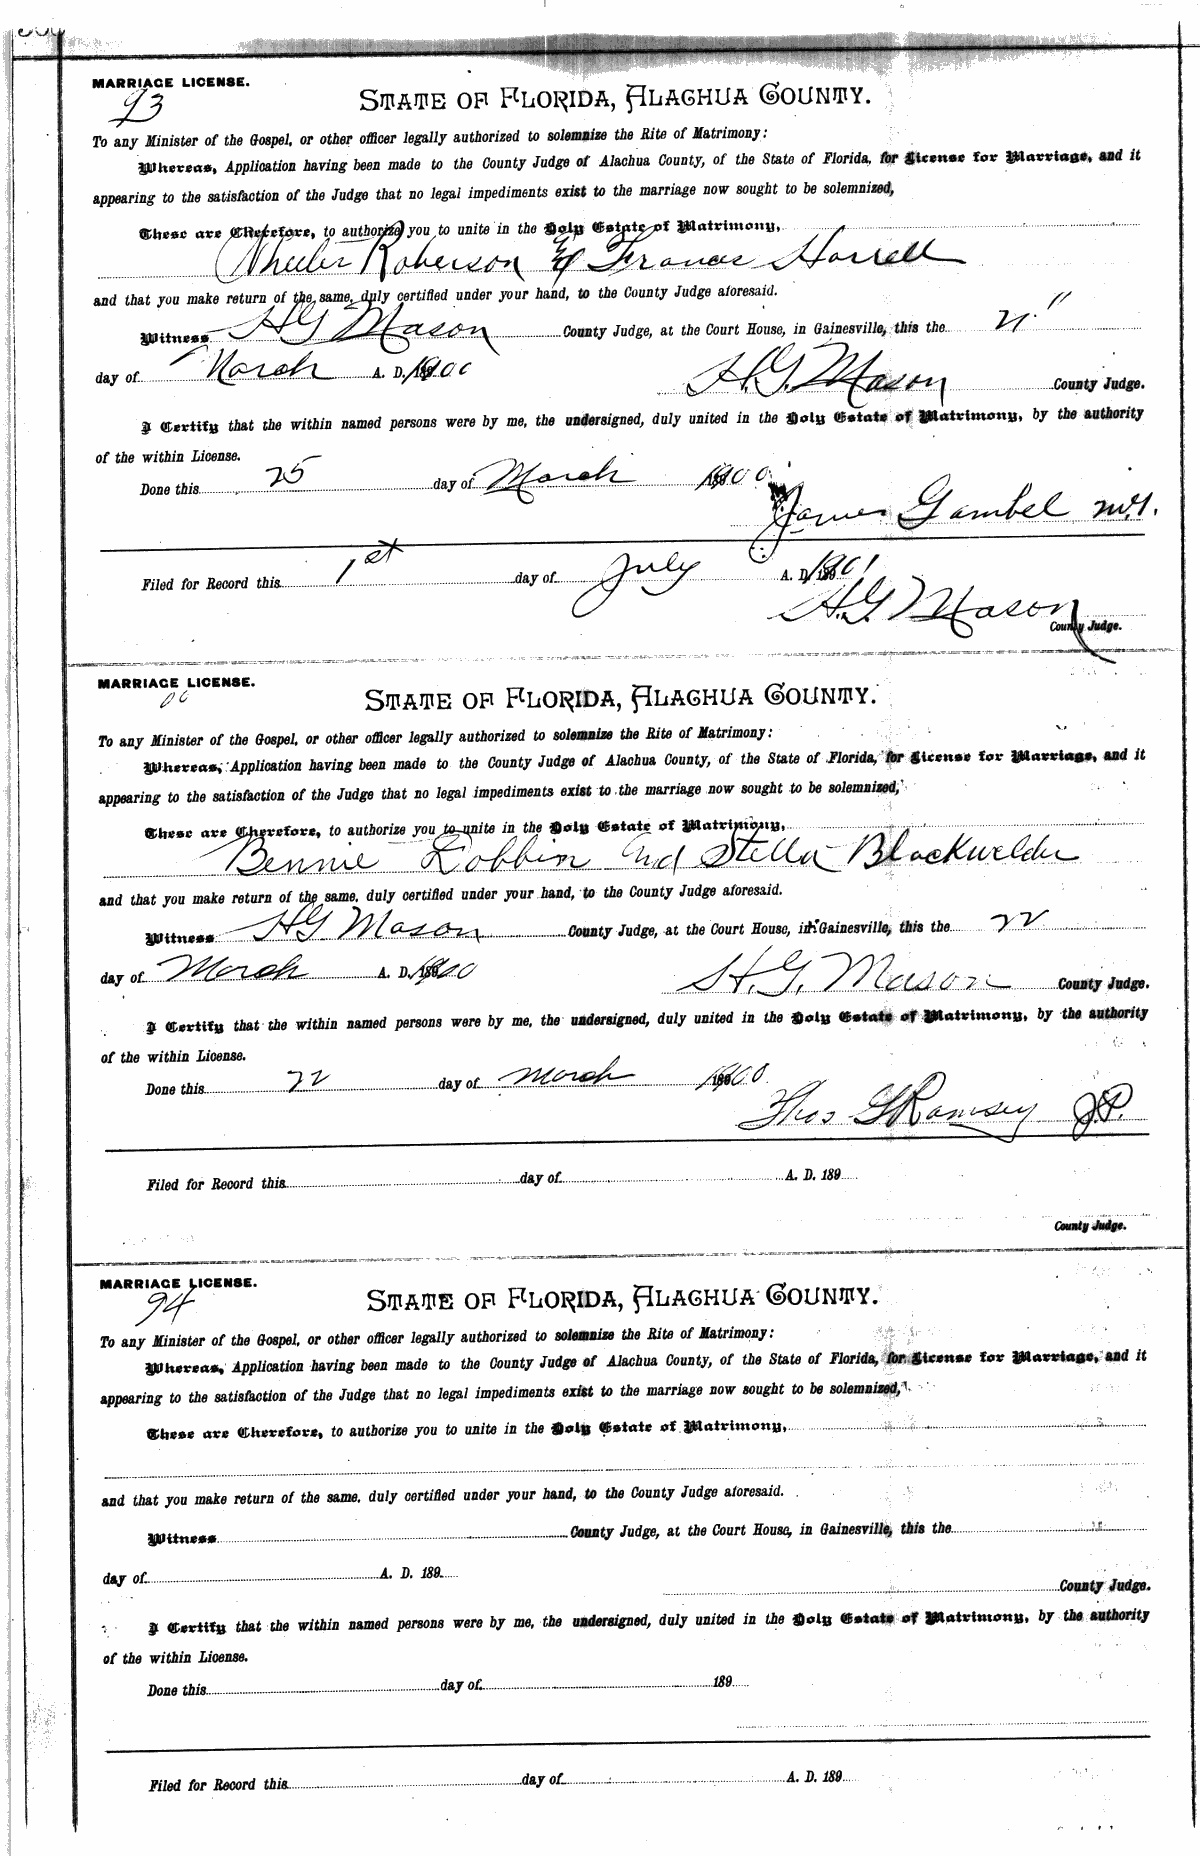 MARRIAGE LICENSE.
93
STATE OF FLORIDA, ALACHUA COUNTY.
To any Minister of the Gospel, or other officer legally authorized to solemnize the Rite of Matrimony:
Whereas, Application having been made to the County Judge of Alachua County, of the State of Florida, for License for Marriage, and it
appearing to the satisfaction of the Judge that no legal impediments exist to the marriage now sought to be solemnized,
These are Therefore, to authorize you to unite in the Holy Estate of Matrimony,
Wheeler Roberson & Frances Harrell
and that you make return of the same, duly certified under your hand, to the County Judge aforesaid.
Witness H G Mason County Judge, at the Court House, in Gainesville, this the
day of March A. D. 1900 H. G. Mason County Judge.
I Certify that the within named persons were by me, the undersigned, duly united in the Holy Estate of Matrimony, by the authority
of the within License.
Done this 25 day of March 1900
James Gambel M.G.
Filed for Record this 1st day of July A. D. 1901
H. G. Mason
County Judge.
MARRIAGE LICENSE.
STATE OF FLORIDA, ALACHUA COUNTY.
To any Minister of the Gospel, or other officer legally authorized to solemnize the Rite of Matrimony:
Whereas, Application having been made to the County Judge of Alachua County, of the State of Florida, for License for Marriage, and it
appearing to the satisfaction of the Judge that no legal impediments exist to the marriage now sought to be solemnized,
These are Therefore, to authorize you to unite in the Holy Estate of Matrimony,
Bennie Dobbin and Stella Blackwelder
and that you make return of the same, duly certified under your hand, to the County Judge aforesaid.
Witness H G Mason County Judge, at the Court House, in Gainesville, this the 22
day of March A. D. 1900 H. G. Mason County Judge.
I Certify that the within named persons were by me, the undersigned, duly united in the Holy Estate of Matrimony, by the authority
of the within License.
Done this 22 day of March 1900
Thos G Ramsey J.P.
Filed for Record this day of A. D. 189
County Judge.
MARRIAGE LICENSE.
94
STATE OF FLORIDA, ALACHUA COUNTY.
To any Minister of the Gospel, or other officer legally authorized to solemnize the Rite of Matrimony:
Whereas, Application having been made to the County Judge of Alachua County, of the State of Florida, for License for Marriage, and it
appearing to the satisfaction of the Judge that no legal impediments exist to the marriage now sought to be solemnized,
These are Therefore, to authorize you to unite in the Holy Estate of Matrimony,
and that you make return of the same, duly certified under your hand, to the County Judge aforesaid.
Witness County Judge, at the Court House, in Gainesville, this the
day of A. D. 189 County Judge.
I Certify that the within named persons were by me, the undersigned, duly united in the Holy Estate of Matrimony, by the authority
of the within License.
Done this day of 189
Filed for Record this day of A. D. 189